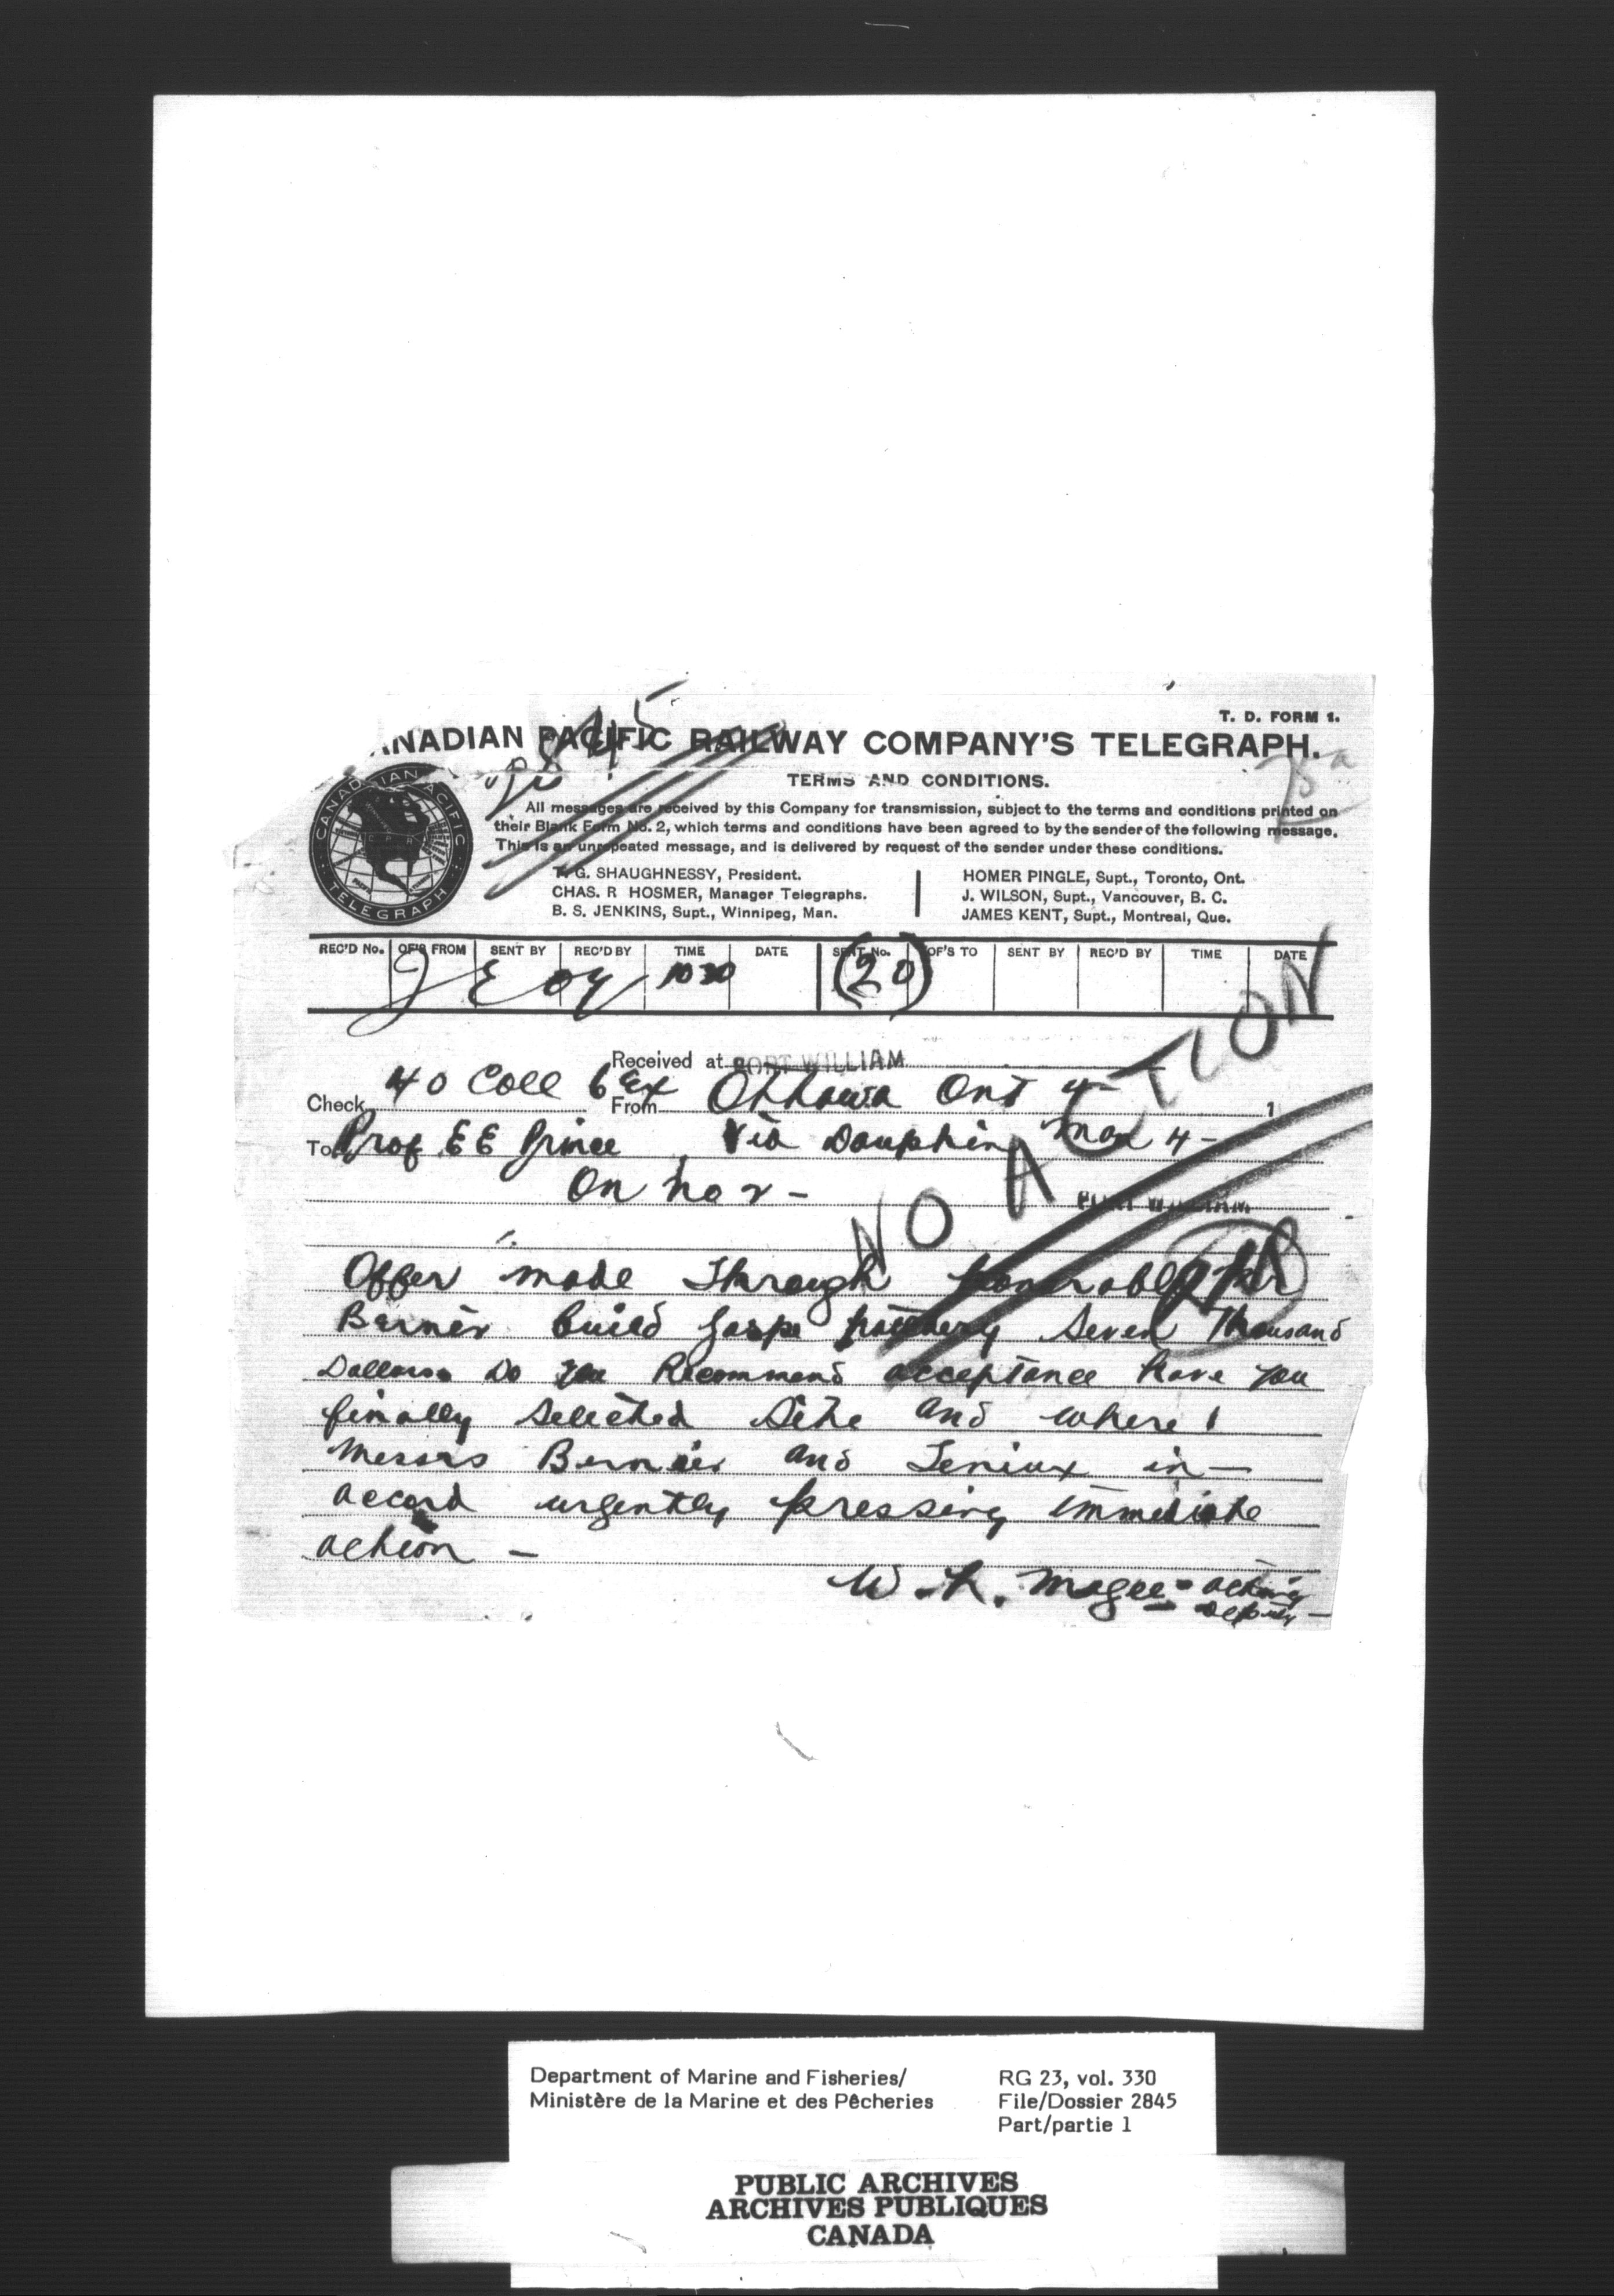 T. D. FORM 1.
CANADIAN PACIFIC RAILWAY COMPANY'S TELEGRAPH.
2845
TERMS AND CONDITIONS.
All messages are received by this Company for transmission, subject to the terms and conditions printed on
their Blank Form No. 2, which terms and conditions have been agreed to by the sender of the following message.
This is an unrepeated message, and is delivered by request of the sender under these conditions.
T. G. SHAUGHNESSY, President.
CHAS. R HOSMER, Manager Telegraphs.
B. S. JENKINS, Supt., Winnipeg, Man.
HOMER PINGLE, Supt., Toronto, Ont.
J. WILSON, Supt., Vancouver, B. C.
JAMES KENT, Supt., Montreal, Que.
CANADIAN PACIFIC TELEGRAPH
REC'D No. OF'S FROM SENT BY REC'D BY TIME DATE SENT No. OF'S TO SENT BY REC'D BY TIME DATE
1030 (20)
NO ACTION
Received at FORT WILLIAM
Check 40 Coll 6 Ex From Ottawa Ont 4- 1
To Prof E E Prince Via Dauphin Man 4-
On No 2-
FORT WILLIAM
Offer made Through Honorable
Bernier build Gaspe hatchery Seven Thousand
Dollars Do you Recommend acceptance have you
finally selected Site and where!
Messrs Bernier and Lemiux in-
accord urgently pressing immediate
action -
W. L. Magee - acting
Deputy -
Department of Marine and Fisheries/
Ministère de la Marine et des Pêcheries
RG 23, vol. 330
File/Dossier 2845
Part/partie 1
PUBLIC ARCHIVES
ARCHIVES PUBLIQUES
CANADA